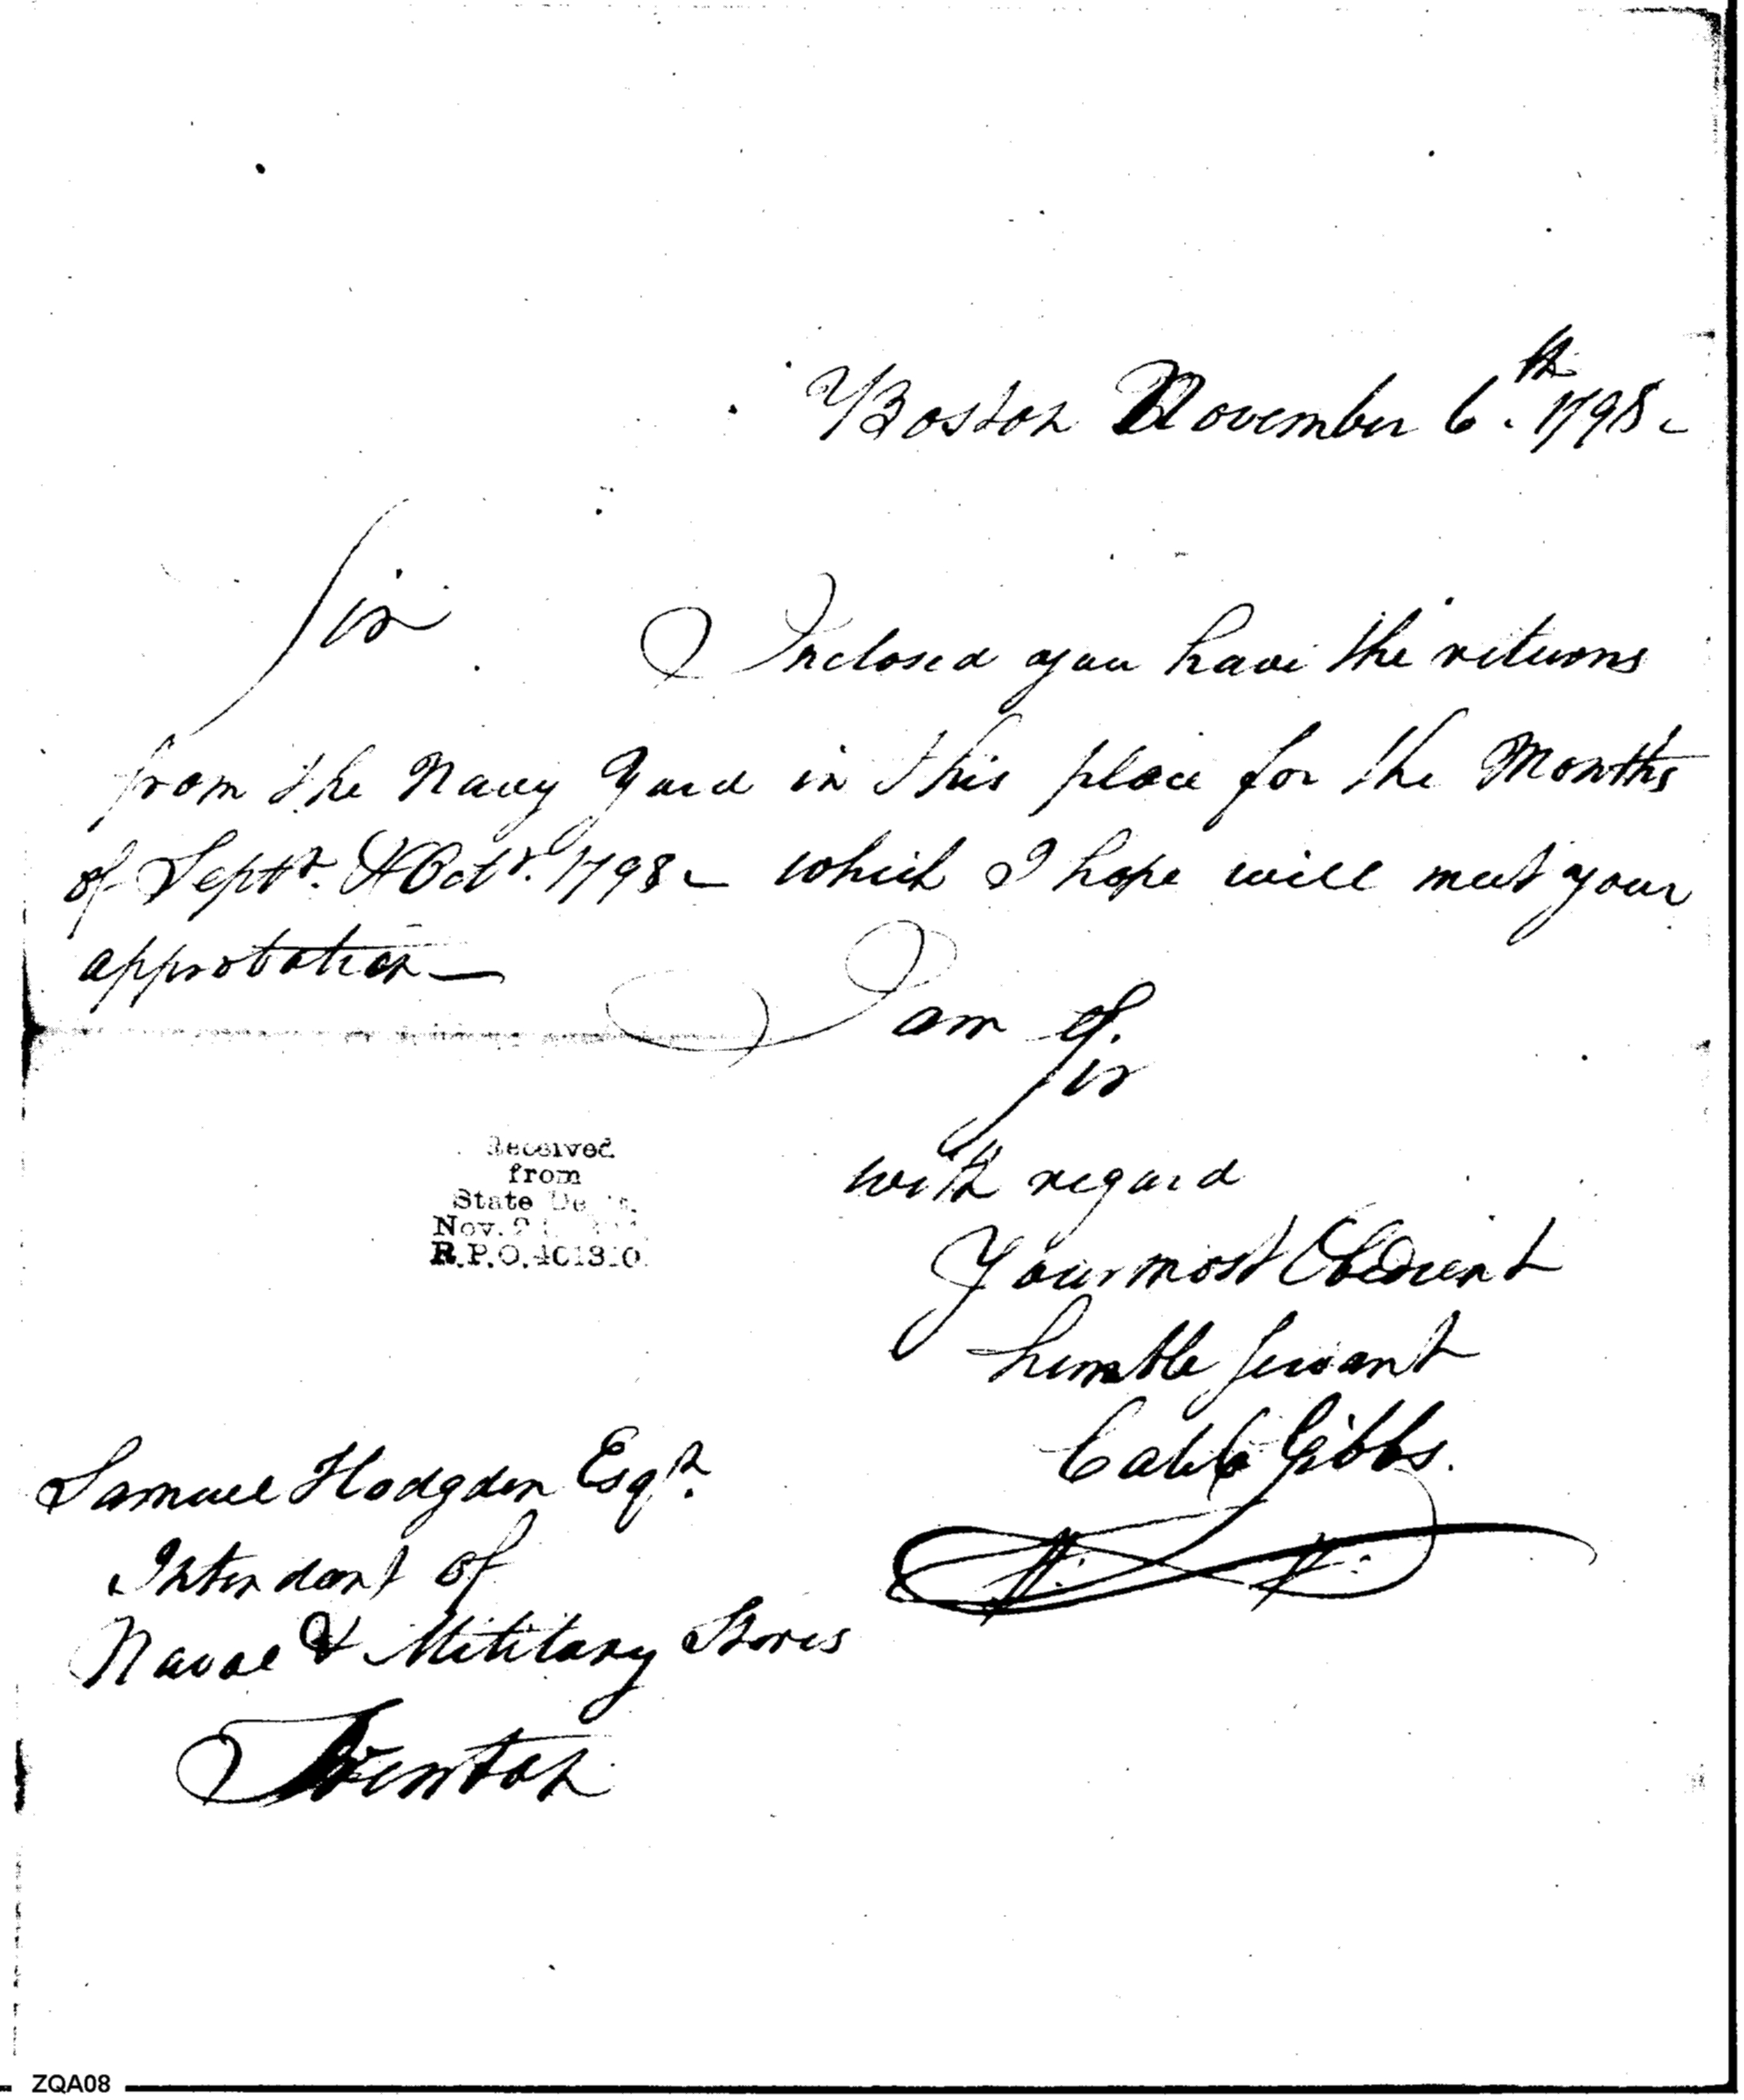 Boston November 6.th 1798-
Sir
Inclosed you have the returns
from the Navy Yard in this place for the Months
of Septr. & Octr. 1798- which I hope will meet your
approbation-
I am
Sir
with regard
Your most Obedient
humble servant
Caleb Gibbs.
Received
from
State
Nov.
R.P.O.
Samuel Hodgden Esqr.
Intendant of
Naval & Military Stores
Trenton
ZQA08